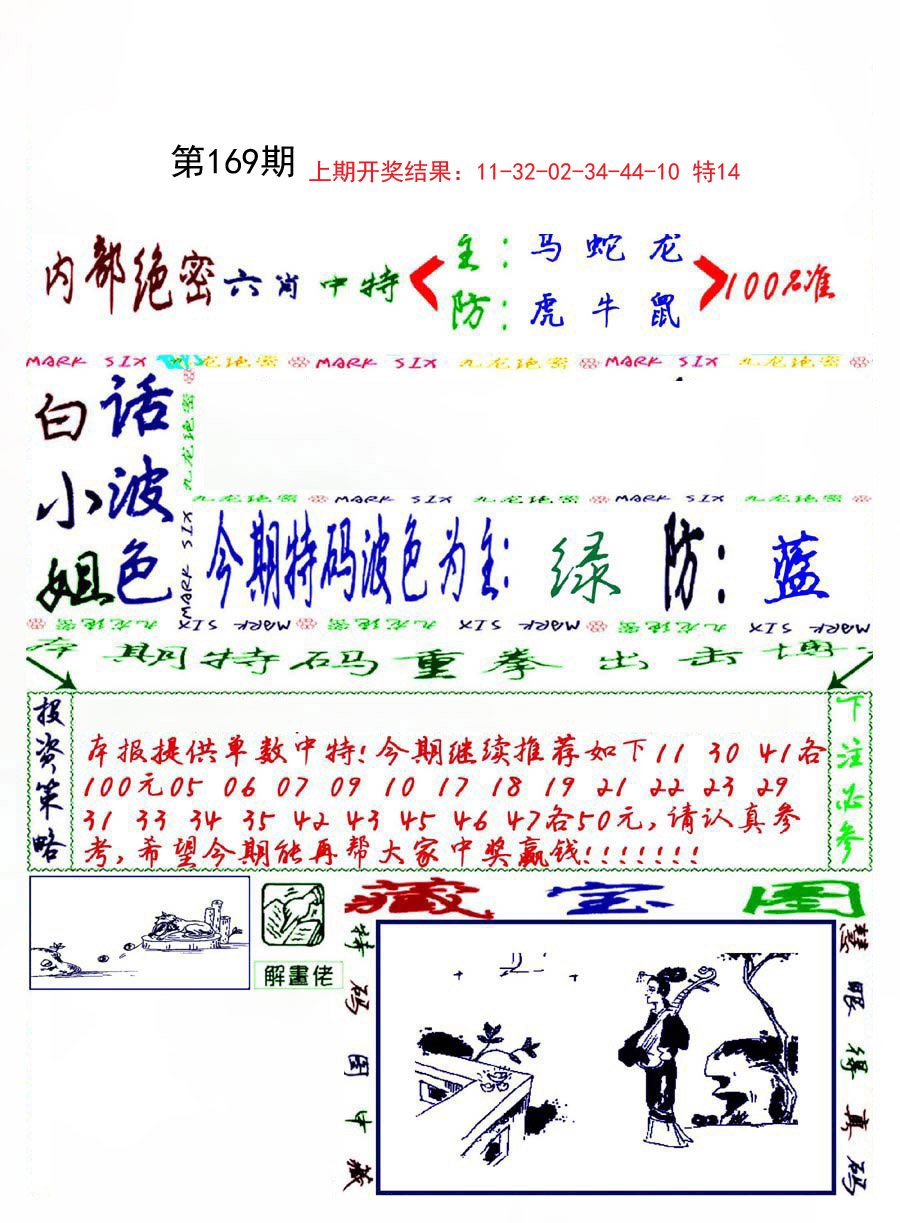 第169期 上期开奖结果：11-32-02-34-44-10 特14
内部绝密六肖中特
主：马 蛇 龙
防：虎 牛 鼠
100%准
MARK SIX 九龙绝密 MARK SIX 九龙绝密 MARK SIX 九龙绝密
白话
小波
姐色
九龙绝密
MARK SIX
九龙绝密 MARK SIX 九龙绝密 MARK SIX 九龙绝密
今期特码波色为主：绿 防：蓝
九龙绝密 MARK SIX 九龙绝密 MARK SIX 九龙绝密 MARK SIX
本期特码重拳出击博
投资策略
本报提供单数中特!今期继续推荐如下11 30 41各
100元05 06 07 09 10 17 18 19 21 22 23 29
31 33 34 35 42 43 45 46 47各50元,请认真参
考,希望今期能再帮大家中奖赢钱!!!!!!!
下注必参
解畫佬
藏宝图
特码图中藏
慧眼得真码